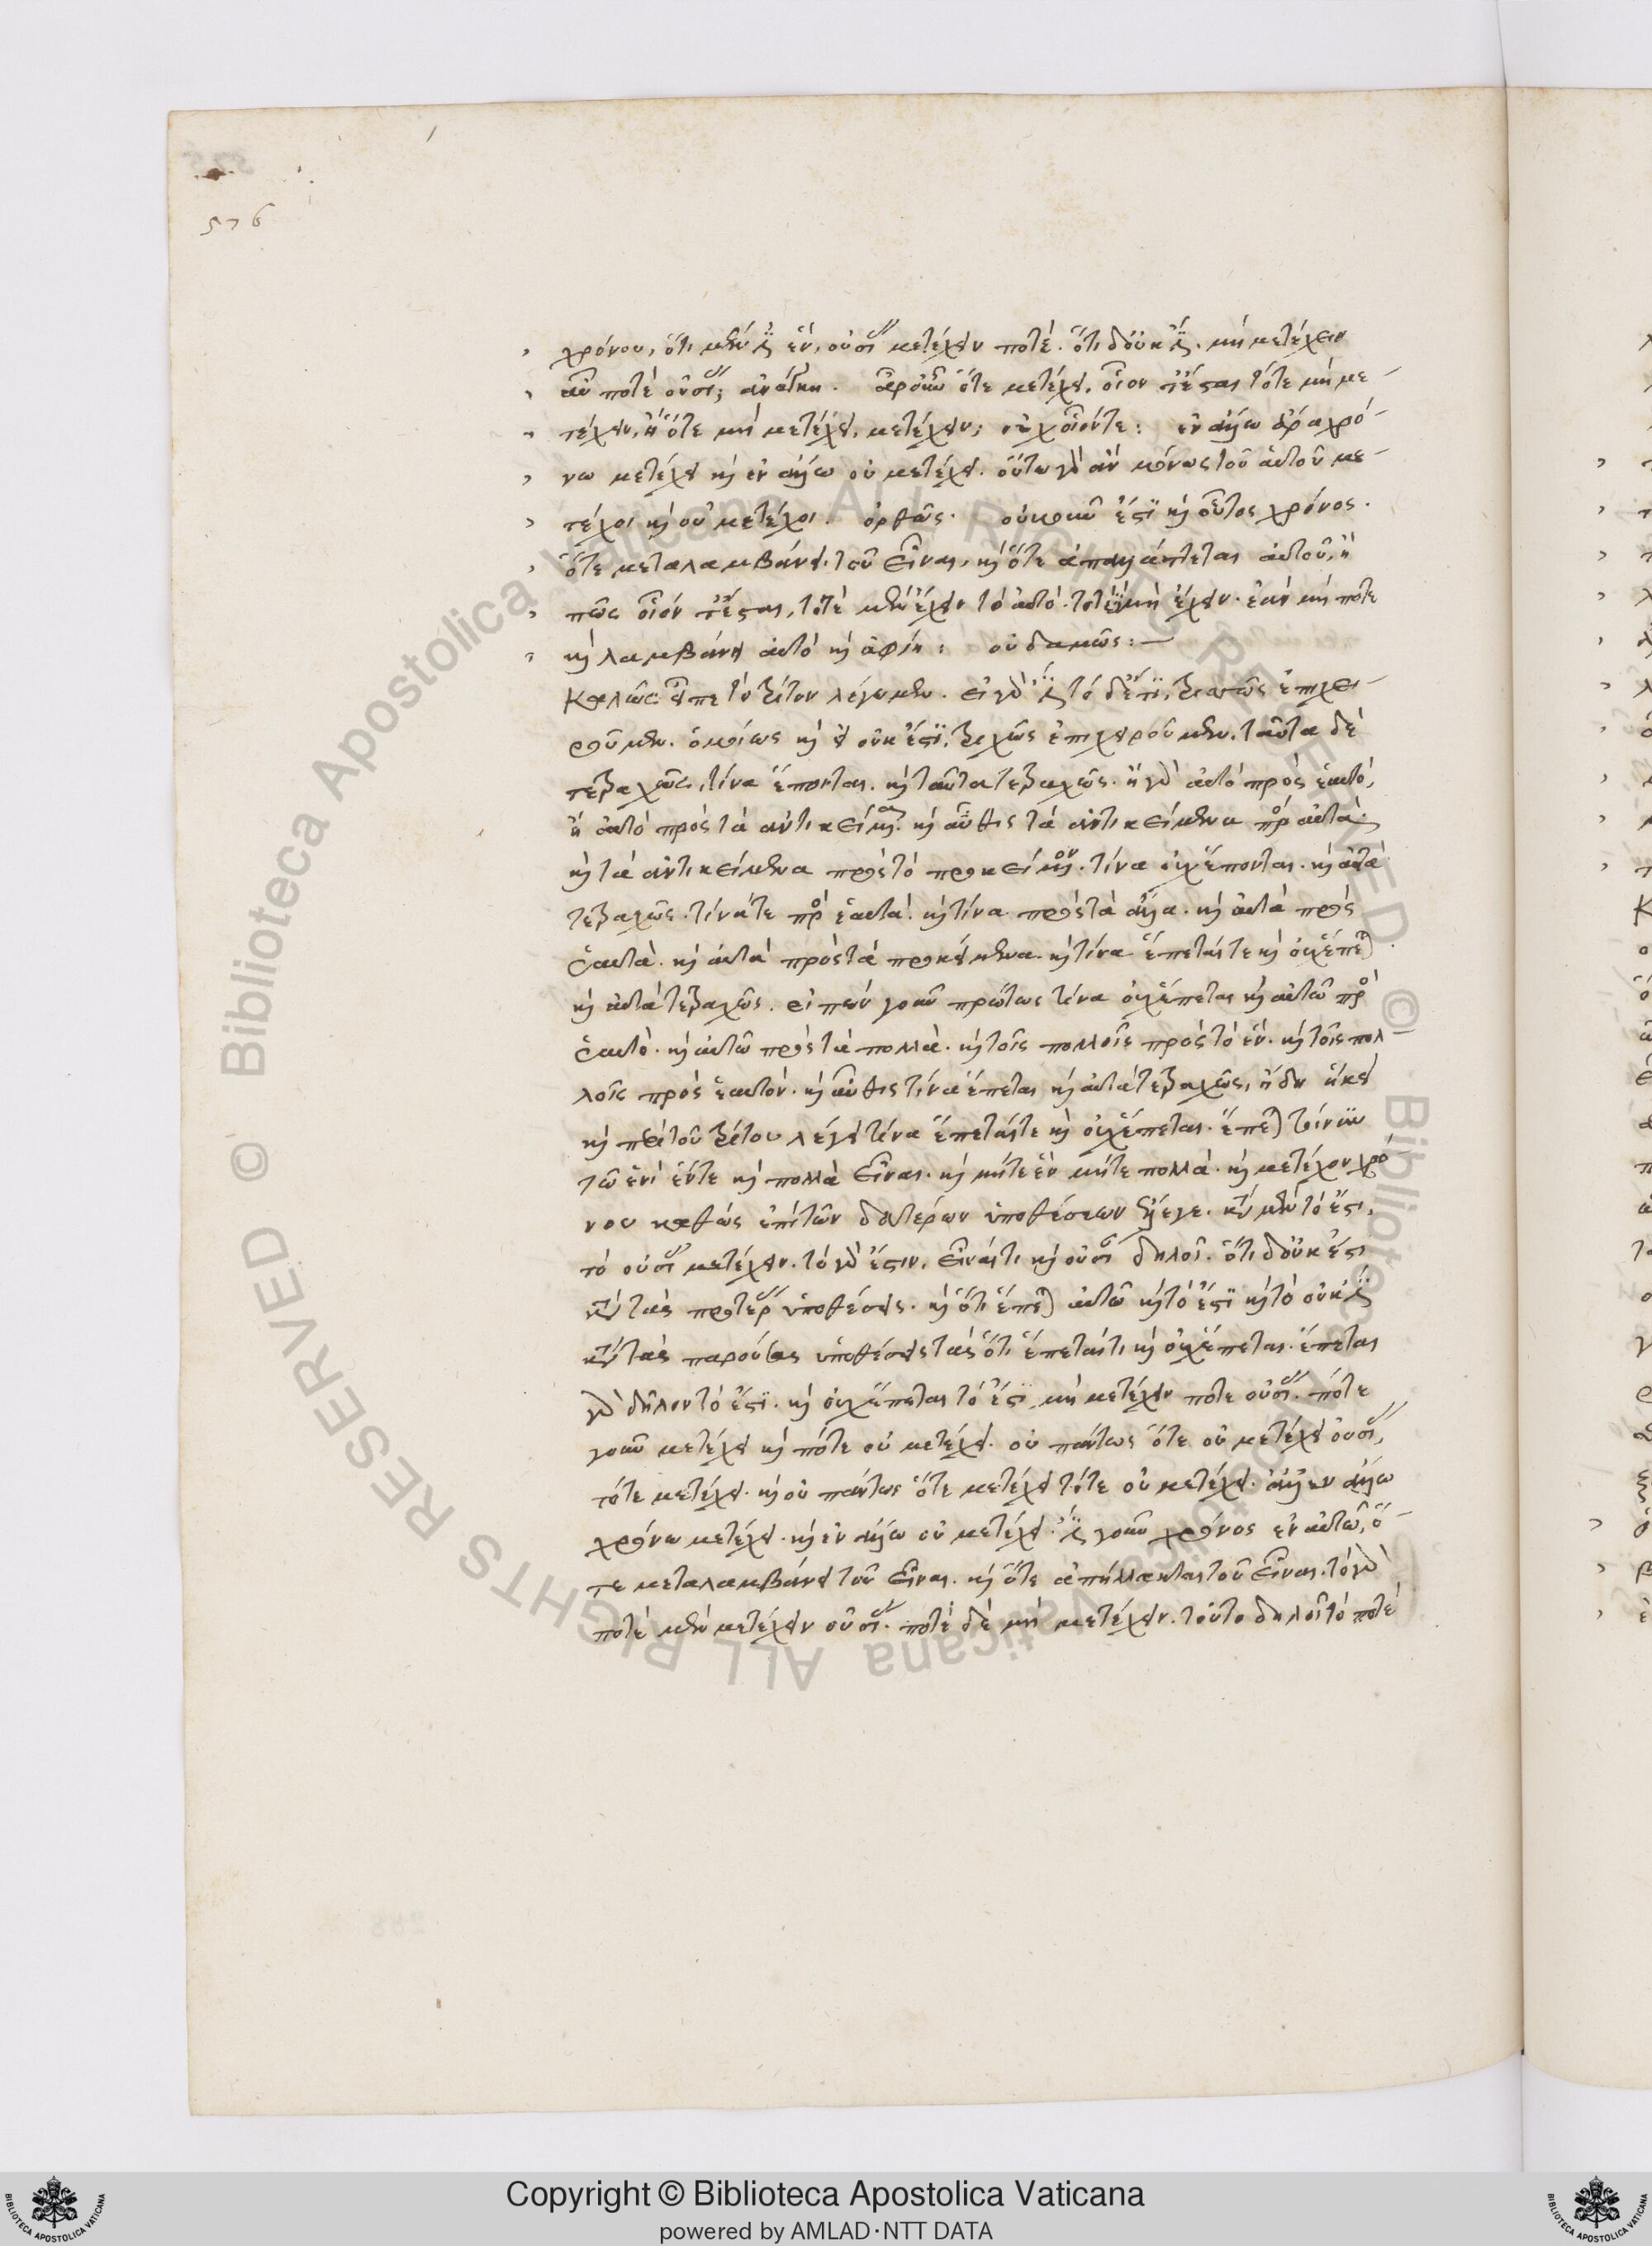 576
χρόνου, ὅτι μὲν ἐστὶν ἕν, οὐσίας μετέχειν ποτέ. ὅτι δ' οὐκ ἔστι, μὴ μετέχειν
αὖ ποτὲ οὐσίας; ἀνάγκη. ἆρ' οὖν ὅτε μετέχει, οἷόν τε ἔσται τότε μὴ με-
τέχειν, ἢ ὅτε μὴ μετέχει, μετέχειν; οὐχ οἷόντε: ἐν ἄλλω ἄρα χρό-
νω μετέχει καὶ ἐν ἄλλω οὐ μετέχει. οὕτω γὰρ ἂν μόνως τοῦ αὐτοῦ με-
τέχοι καὶ οὐ μετέχοι. ὀρθῶς. οὐκοῦν ἔστι καὶ οὗτος χρόνος.
ὅτε μεταλαμβάνει τοῦ εἶναι, καὶ ὅτε ἀπαλλάττεται αὐτοῦ, ἢ
πῶς οἷόν τε ἔσται, τοτὲ μὲν ἔχειν τὸ αὐτό. τοτὲ δὲ μὴ ἔχειν. ἐὰν μή ποτε
καὶ λαμβάνη αὐτὸ καὶ ἀφίη: οὐδαμῶς:—
Καλῶς εἶπε τὸ τρίτον λέγωμεν. εἰ γὰρ ἔστι τὸ δέ τι, τριττῶς ἐπιχει-
ροῦμεν. ὁμοίως καὶ εἰ οὐκ ἔστι, τριχῶς ἐπιχειροῦμεν. ταῦτα δὲ
τετραχῶς, τίνα ἕπονται. καὶ ταῦτα τετραχῶς. ἢ γὰρ αὐτὸ πρὸς ἑαυτό,
ἢ αὐτὸ πρὸς τὰ ἀντικείμενα. καὶ αὖθις τὰ ἀντικείμενα πρὸς αὐτά.
καὶ τὰ ἀντικείμενα πρὸς τὸ προκείμενον. τίνα οὐχ ἕπονται. καὶ αὐτὰ
τετραχῶς. τίνα τε πρὸς ἑαυτά. καὶ τίνα πρὸς τὰ ἄλλα. καὶ αὐτὰ πρὸς
ἑαυτὰ. καὶ αὐτὰ πρὸς τὰ προκείμενα. καὶ τίνα ἕπεταί τε καὶ οὐχ ἕπεται.
καὶ αὐτὰ τετραχῶς. εἰπὼν γοῦν πρώτως τίνα οὐχ ἕπεται καὶ αὐτῶ πρὸς
ἑαυτὸ. καὶ αὐτῶ πρὸς τὰ πολλὰ. καὶ τοῖς πολλοῖς πρὸς τὸ ἕν. καὶ τοῖς πολ-
λοῖς πρὸς ἑαυτόν. καὶ αὖθις τίνα ἕπεται καὶ αὐτὰ τετραχῶς, ἤδη ἥκει
καὶ περὶ τοῦ τρίτου λέγει τίνα ἕπεταί τε καὶ οὐχ ἕπεται. ἕπεται τοίνυν
τῶ ἑνὶ ἕν τε καὶ πολλὰ εἶναι. καὶ μήτε ἓν μήτε πολλὰ. καὶ μετέχον χρό
νου καθὼς ἐπὶ τῶν δευτέρων ὑποθέσεων ἔλεγε. κατὰ μὲν τὸ ἔστι,
τὸ οὐσίας μετέχειν. τὸ γὰρ ἔστιν, εἶναί τι καὶ οὐσίαν δηλοῖ. ὅτι δ' οὐκ ἔστι
κατὰ τὰς προτέρας ὑποθέσεις. καὶ ὅτι ἕπεται αὐτῶ καὶ τὸ ἔστι καὶ τὸ οὐκ ἔστι
κατὰ τὰς παρούσας ὑποθέσεις τὰς ὅτι ἕπεταί τι καὶ οὐχ ἕπεται. ἕπεται
γὰρ δῆλον τὸ ἔστι. καὶ οὐχ ἕπεται τὸ ἔστι μὴ μετέχειν ποτε οὐσίας. πότε
γοῦν μετέχει καὶ πότε οὐ μετέχει. οὐ πάντως ὅτε οὐ μετέχει οὐσίας,
τότε μετέχει. καὶ οὐ πάντως ὅτε μετέχει τότε οὐ μετέχει. ἀλλ' ἐν ἄλλω
χρόνω μετέχει. καὶ ἐν ἄλλω οὐ μετέχει. ἔστι γοῦν χρόνος ἐν αὐτῶ, ὅ-
τε μεταλαμβάνει τοῦ εἶναι. καὶ ὅτε ἀπήλλακται τοῦ εἶναι. τὸ γὰρ
ποτὲ μὲν μετέχειν οὐσίας. ποτὲ δὲ μὴ μετέχειν. τοῦτο δηλοῖ τὸ ποτὲ